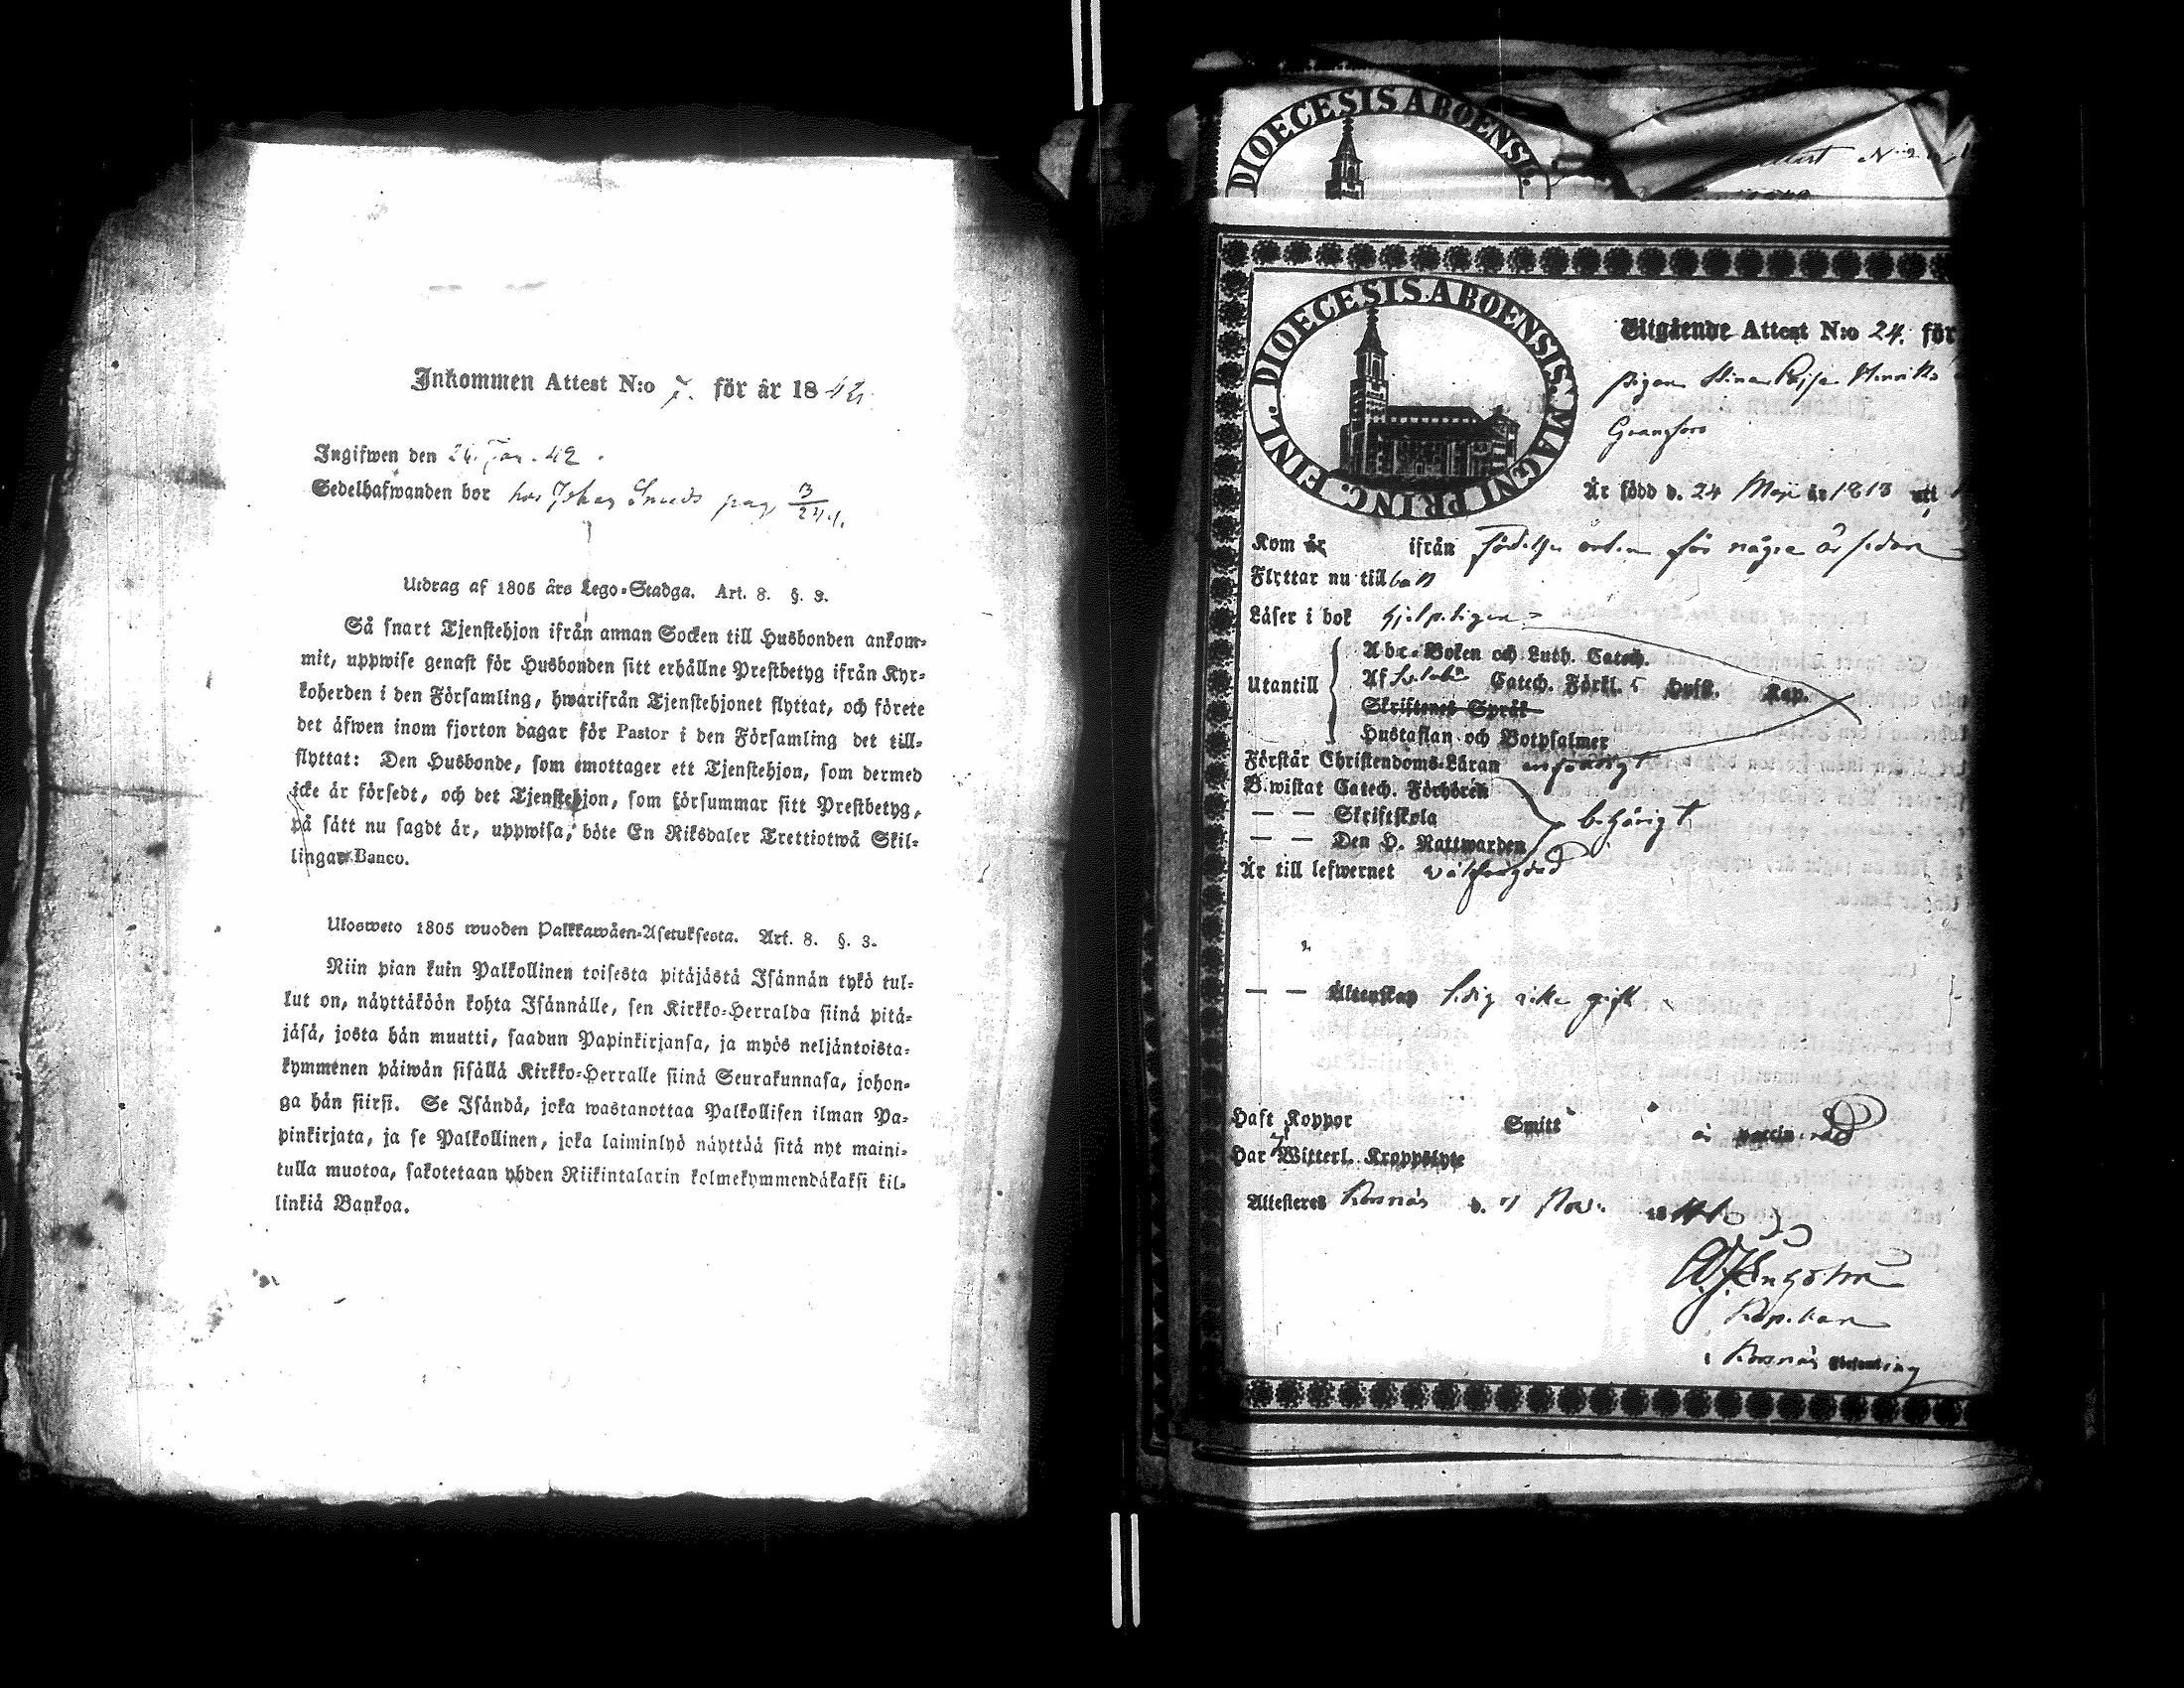 Inkommen Attest N:o 7. för år 1842
Ingifwen den 26 Jan. 42.
Sedelhafwanden bor hos Johan Smeds pag 3/24.
Utdrag af 1805 års Lego-Stadga. Art. 8. §. 3.
Så snart Tjenstehjon ifrån annan Socken till Husbonden ankom-
mit, uppwise genast för Husbonden sitt erhållne Prestbetyg ifrån Kyr-
koherden i den Församling, hwarifrån Tjenstehjonet flyttat, och förete
det åfwen inom fjorton dagar för Pastor i den Församling det till-
flyttat: Den Husbonde, som emottager ett Tjenstehjon, som dermed
icke är försedt, och det Tjenstehjon, som försummar sitt Prestbetyg,
på sätt nu sagdt är, uppwisa, böte En Riksdaler Trettiotwå Skil-
lingar Banco.
Ulosweto 1805 wuoden Palkkawäen-Asetuksesta. Art. 8. §. 3.
Niin pian kuin Palkollinen toisesta pitäjästä Isännän tykö tul-
lut on, näyttäköön kohta Isännälle, sen Kirkko-Herralda siinä pitä-
jäsä, josta hän muutti, saadun Papinkirjansa, ja myös neljäntoista-
kymmenen päiwän sisällä Kirkko-Herralle siinä Seurakunnasa, johon-
ga hän siirsi. Se Isändä, joka wastanottaa Palkollisen ilman Pa-
pinkirjata, ja se Palkollinen, joka laiminlyö näyttää sitä nyt maini-
tulla muotoa, sakotetaan yhden Riikintalarin kolmekymmendäkaksi kil-
linkiä Bankoa.
DIOECESIS ABOENSI
DIOECESIS ABOENSIS. MAGNI PRINC. FINL.
Utgående Attest N:o 24. för
pigan Stina Cajsa Henriks
Är född d. 24 Maji år 1813 uti
Kom år ifrån födelse orten för några år sedan
Flyttar nu till
Läser i bok hjelpligen
Utantill
Abc-Boken och Luth. Catech.
Af Svebelii Catech. Förkl. 5 Hufst. Kap.
Skriftenes Språk
Hustaflan och Botpsalmer
Förstår Christendoms-Läran
Biwistat Catech. Förhören
— — Skriftskola behörigt
— — Den H. Nattwarden
Är till lefwernet välfrägdad
— — Äktenskap ledig icke gift
Haft Koppor Smitt är vaccinerad
Har Witterl. Kroppslyte
Attesteras Korsnäs d. Nov. 18
Kapellan
i Korsnäs Församling